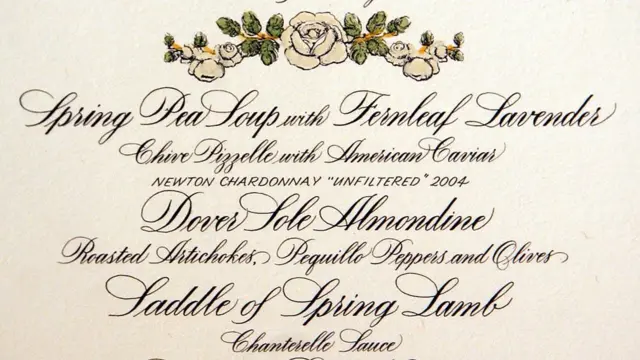 Spring Pea Soup with Fernleaf Lavender
Chive Pizzelle with American Caviar
NEWTON CHARDONNAY "UNFILTERED" 2004
Dover Sole Almondine
Roasted Artichokes, Pequillo Peppers and Olives
Saddle of Spring Lamb
Chanterelle Sauce